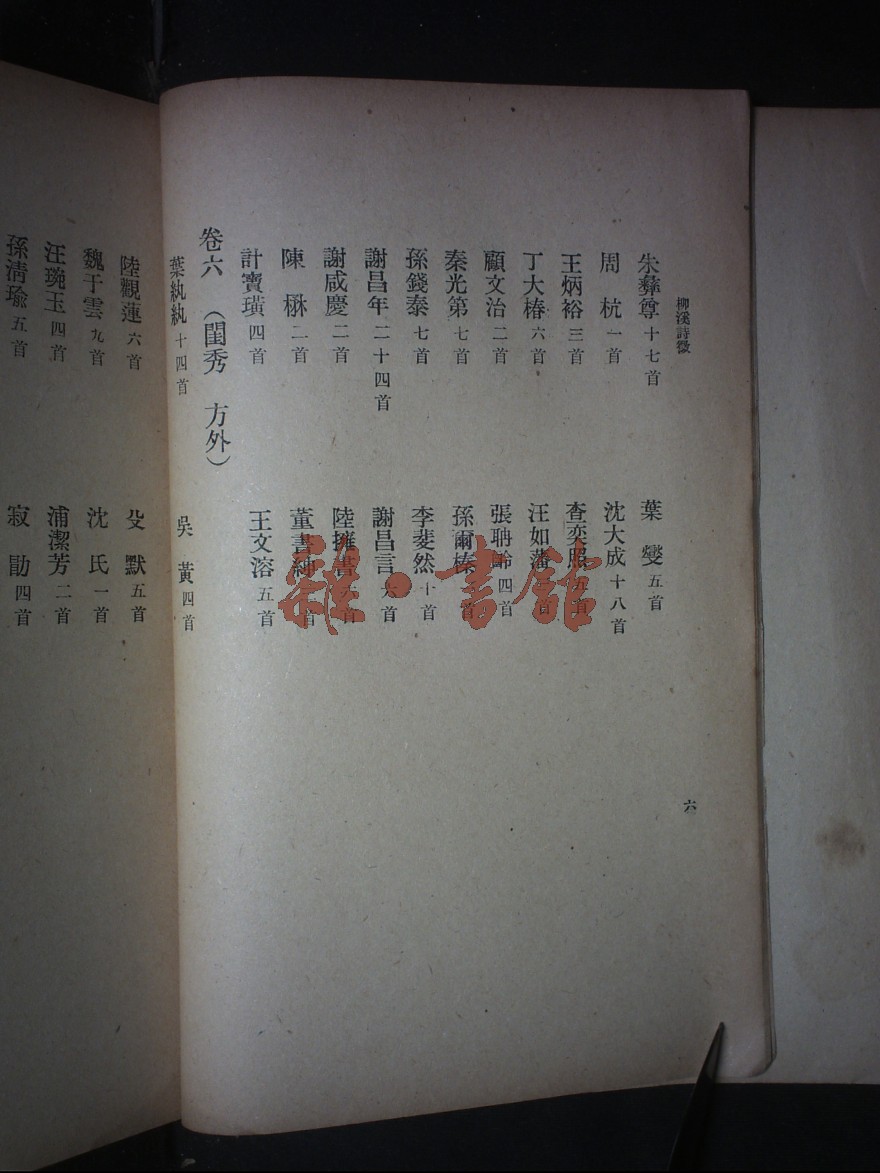 柳溪詩徵
朱彝尊 十七首
葉燮 五首
周杭 一首
沈大成 十八首
王炳裕 三首
查奕照 五首
丁大椿 六首
汪如藩 首
顧文治 二首
張聃齡 四首
秦光第 七首
孫爾榛 首
孫錢泰 七首
李斐然 十首
謝昌年 二十四首
謝昌言 六首
謝咸慶 二首
陸擁書 首
陳 二首
董書紳 首
計寶璜 四首
王文溶 五首
卷六 （閨秀 方外）
葉紈紈 十四首
吳黃 四首
陸觀蓮 六首
殳默 五首
魏于雲 九首
沈氏 一首
汪琬玉 四首
浦潔芳 二首
孫淸瑜 五首
寂 四首
六
雜·書館